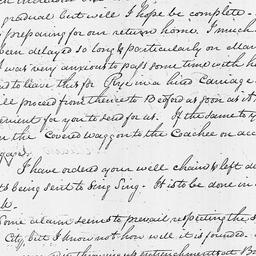 gradual but will I hope be complete -
preparing for our return home. I much
been delayed so long & particularly on
was very anxious to pass some time with h
to leave this for Rye in a hired Carriage
ll proceed from thence to Bedford as soon as it
enient for you to send for us. If the same to y
the covered waggon to the Coachee on ac
gage.
I have ordered your well chain & left d
ts being sent to Sing Sing. It is to be done in
k.
Some alarm seems to prevail respecting the s
City, but I know not how well it is founded.
throwing up entrenchments at B